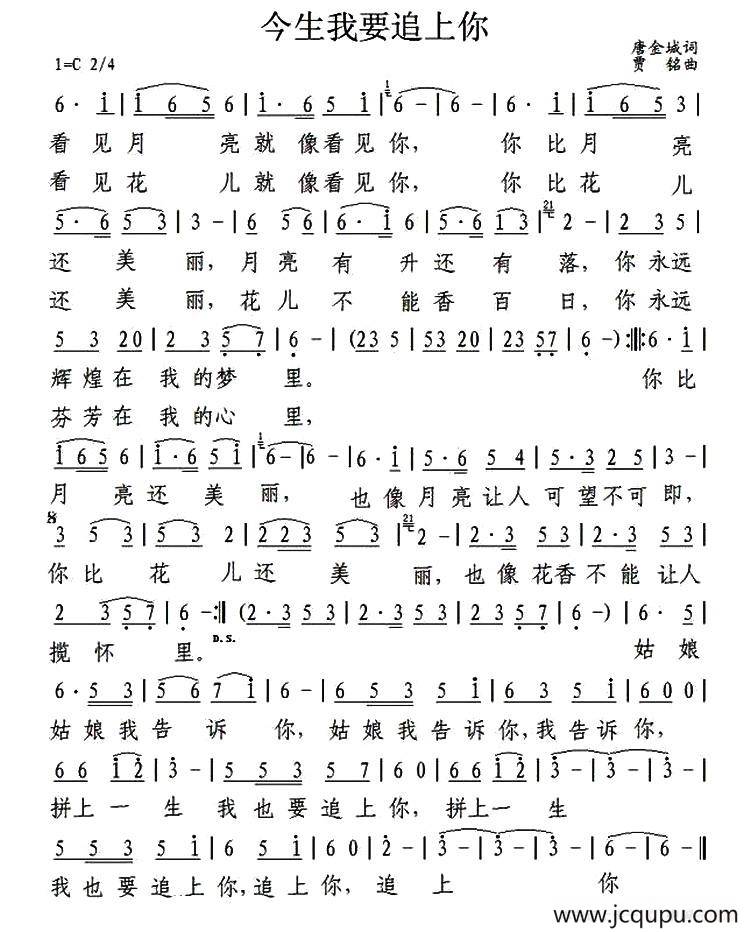 今生我要追上你
唐金城词
1=C 2/4
贾 铭曲
6· i | i 6 5 6 | i· 6 5 i | 6 - | 6 - | 6· i | i 6 5 3 |
看 见 月 亮 就 像 看 见 你， 你 比 月 亮
看 见 花 儿 就 像 看 见 你， 你 比 花 儿
5· 6 5 3 | 3 - | 6 5 6 | 6· i | 5· 6 1 3 | 2 - | 2 3 5 |
还 美 丽，月 亮 有 升 还 有 落，你 永 远
还 美 丽，花 儿 不 能 香 百 日，你 永 远
5 3 20 | 2 3 5 7 | 6 - | (23 5 | 53 20 | 23 57 | 6 -) :||: 6· i |
辉 煌 在 我 的 梦 里。 你 比
芬 芳 在 我 的 心 里，
i 6 5 6 | i· 6 5 i | 6 - | 6 - | 6· i | 5· 6 5 4 | 5· 3 2 5 | 3 - |
月 亮 还 美 丽， 也 像 月 亮 让 人 可 望 不 可 即，
3 5 3 | 5 3 2 | 2 2 3 5 3 | 2 - | 2· 3 5 3 | 2· 3 5 3 |
你 比 花 儿 还 美 丽，也 像 花 香 不 能 让 人
2 3 5 7 | 6 - :|| (2· 3 5 3 | 2· 3 5 3 | 2 3 5 7 | 6 -) | 6· 5 |
揽 怀 里。 D.S. 姑 娘
6· 5 3 | 5 6 7 i | 6 - | 6 5 3 5 i | 6 5 i | 6 5 i | 6 0 0 |
姑 娘 我 告 诉 你，姑 娘 我 告 诉 你，我 告 诉 你，
6 6 i 2 | 3 - | 5 5 3 5 7 | 6 0 0 | 6 6 i 2 | 3 - | 3 - |
拼 上 一 生 我 也 要 追 上 你，拼 上 一 生
5 5 3 5 i | 6 5 i | 6 0 | 6 5 | 2 - | 3 - | 3 - | 3 - ||
我 也 要 追 上 你，追 上 你，追 上 你
www.jcqupu.com